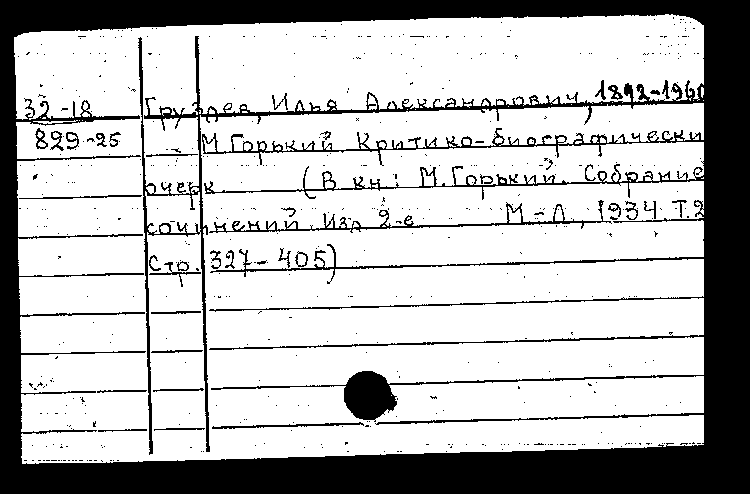 32-18 Груздев, Илья Александрович, 1892-1960
829-25 М.Горький Критико-биографически
очерк (В кн: М.Горький. Собрание
сочинений. Изд 2-е М-Л, 1934. Т.2
Стр. 327-405)